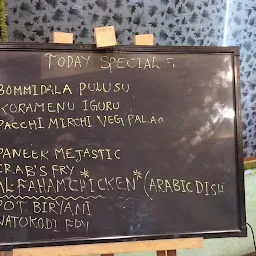 TODAY SPECIAL :-
BOMMIDALA PULUSU
KORAMENU IGURU
PACCHI MIRCHI VEG PALAO
PANEER MEJASTIC
CRAB'S FRY
AL FAHAM CHICKEN* (ARABIC DISH
POT BIRYANI
NATOKODI FRY